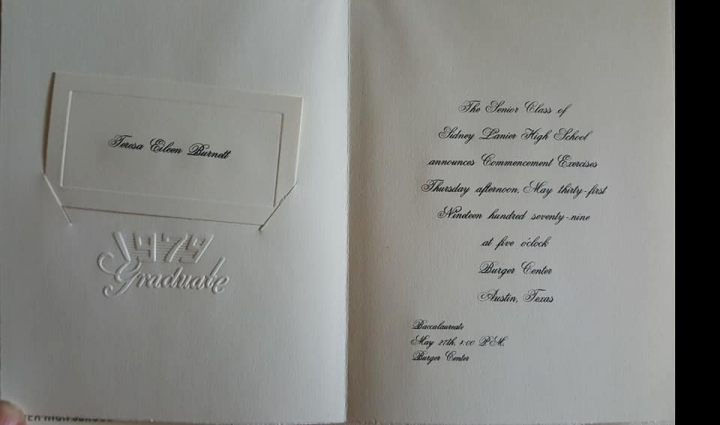 Teresa Eileen Burnett
1979
Graduate
The Senior Class of
Sidney Lanier High School
announces Commencement Exercises
Thursday afternoon, May thirty-first
Nineteen hundred seventy-nine
at five o'clock
Burger Center
Austin, Texas
Baccalaureate
May 27th, 4:00 P.M.
Burger Center